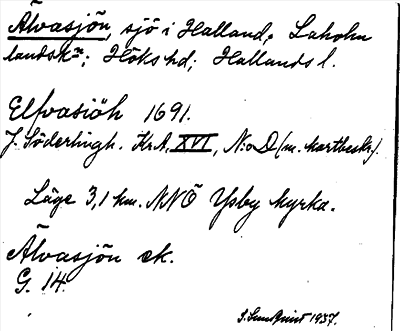 Älvasjön, sjö i Halland. Laholm
landskn; Höks hd; Hallands l.
Elfvasiöh 1691.
J. Söderlingh. KrA, XVI, N:o D (m. kartbeskr.).
Läge 3,1 km. NNÖ Ysby kyrka.
Älvasjön ek.
G. 14.
J. Sundquist 1937.